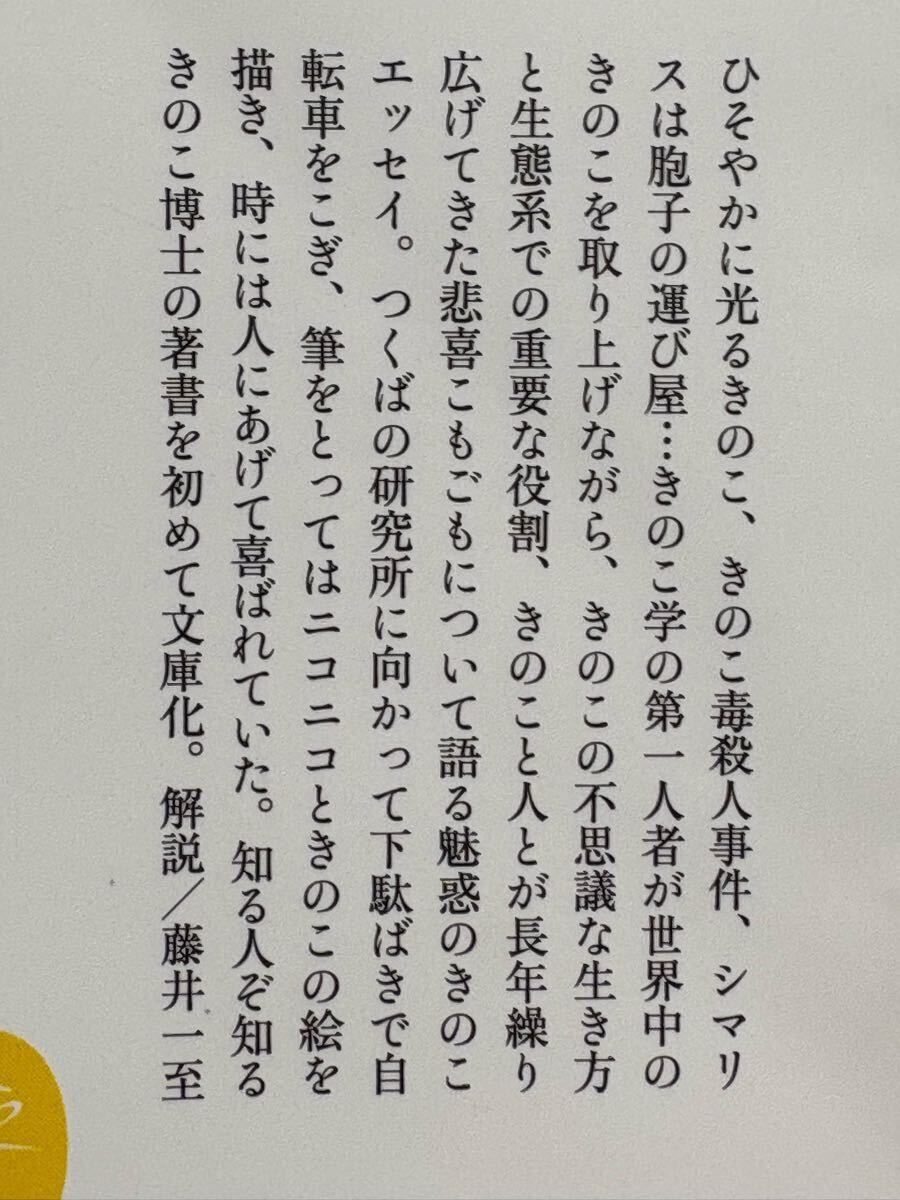 ひそやかに光るきのこ、きのこ毒殺人事件、シマリ
スは胞子の運び屋…きのこ学の第一人者が世界中の
きのこを取り上げながら、きのこの不思議な生き方
と生態系での重要な役割、きのこと人とが長年繰り
広げてきた悲喜こもごもについて語る魅惑のきのこ
エッセイ。つくばの研究所に向かって下駄ばきで自
転車をこぎ、筆をとってはニコニコときのこの絵を
描き、時には人にあげて喜ばれていた。知る人ぞ知る
きのこ博士の著書を初めて文庫化。解説／藤井一至